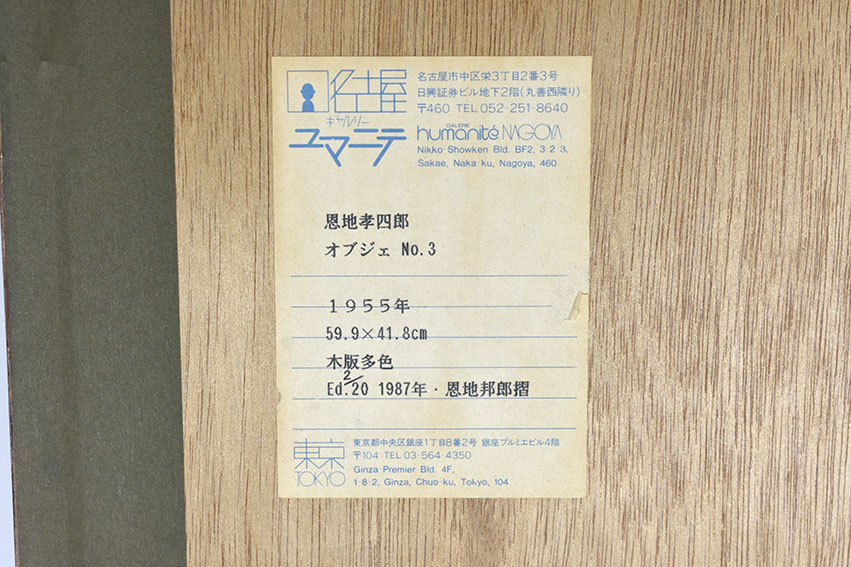 名古屋
ギャルリー
ユマニテ
名古屋市中区栄3丁目2番3号
日興証券ビル地下2階(丸善西隣り)
〒460 TEL 052-251-8640
GALERIE
humanité NAGOYA
Nikko Showken Bld. BF2, 3-2-3,
Sakae, Naka-ku, Nagoya, 460
恩地孝四郎
オブジェ No.3
1955年
59.9×41.8cm
木版多色
Ed.2/20 1987年・恩地邦郎摺
東京
TOKYO
東京都中央区銀座1丁目8番2号 銀座プルミエビル4階
〒104 TEL 03-564-4350
Ginza Premier Bld. 4F,
1-8-2, Ginza, Chuo-ku, Tokyo, 104